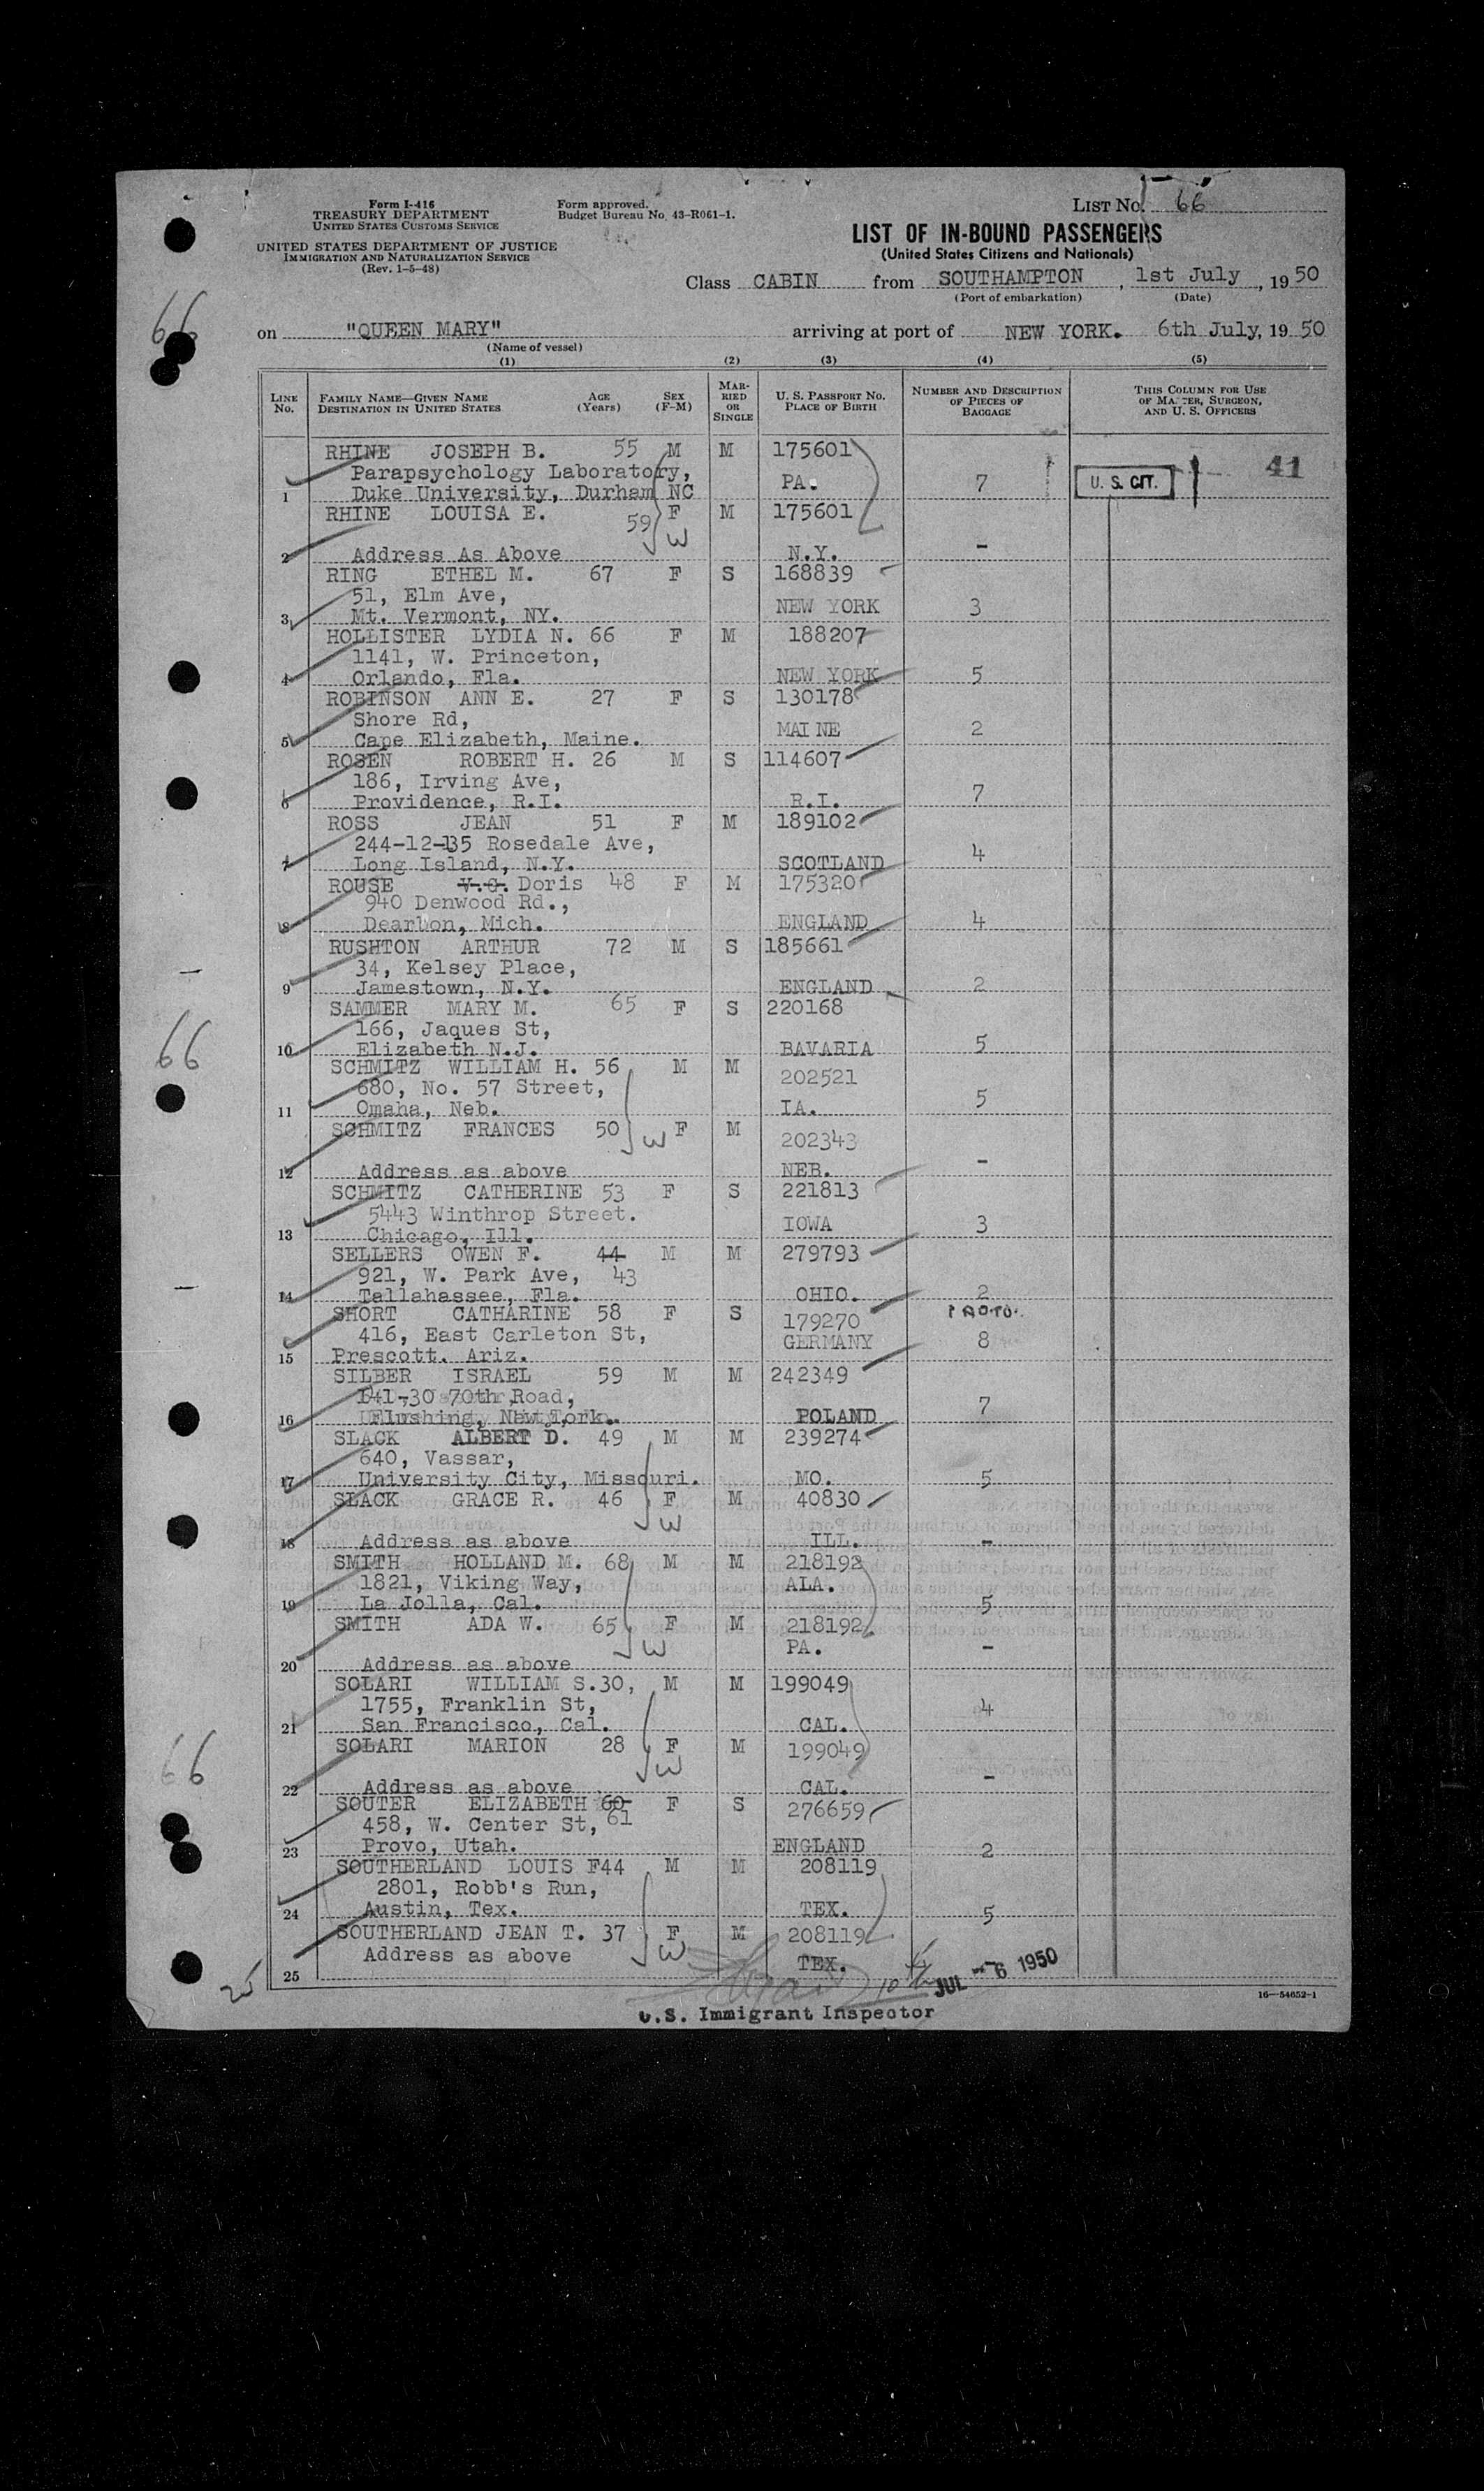 Form I-416
TREASURY DEPARTMENT
UNITED STATES CUSTOMS SERVICE
UNITED STATES DEPARTMENT OF JUSTICE
IMMIGRATION AND NATURALIZATION SERVICE
(Rev. 1-5-48)
Form approved.
Budget Bureau No. 43-R061-1.
LIST NO. 66
LIST OF IN-BOUND PASSENGERS
(United States Citizens and Nationals)
Class CABIN from SOUTHAMPTON, 1st July, 1950
(Port of embarkation) (Date)
66
on "QUEEN MARY" arriving at port of NEW YORK. 6th July, 1950
(Name of vessel)
(1) (2) (3) (4) (5)
LINE No. FAMILY NAME—GIVEN NAME DESTINATION IN UNITED STATES AGE (Years) SEX (F-M) MARRIED OR SINGLE U. S. PASSPORT NO. PLACE OF BIRTH NUMBER AND DESCRIPTION OF PIECES OF BAGGAGE THIS COLUMN FOR USE OF MASTER, SURGEON, AND U. S. OFFICERS
RHINE JOSEPH B. 55 M M 175601
Parapsychology Laboratory, PA. 7 U. S. CIT. 41
1 Duke University, Durham NC
RHINE LOUISA E. 59 F M 175601
W
2 Address As Above N.Y. -
RING ETHEL M. 67 F S 168839
51, Elm Ave,
3 Mt. Vermont, NY. NEW YORK 3
HOLLISTER LYDIA N. 66 F M 188207
1141, W. Princeton,
4 Orlando, Fla. NEW YORK 5
ROBINSON ANN E. 27 F S 130178
Shore Rd,
5 Cape Elizabeth, Maine. MAINE 2
ROSEN ROBERT H. 26 M S 114607
186, Irving Ave,
6 Providence, R.I. R.I. 7
ROSS JEAN 51 F M 189102
244-12-135 Rosedale Ave,
7 Long Island, N.Y. SCOTLAND 4
ROUSE V.C. Doris 48 F M 175320
940 Denwood Rd.,
8 Dearbon, Mich. ENGLAND 4
RUSHTON ARTHUR 72 M S 185661
34, Kelsey Place,
9 Jamestown, N.Y. ENGLAND 2
SAMMER MARY M. 65 F S 220168
166, Jaques St,
66
10 Elizabeth N.J. BAVARIA 5
SCHMITZ WILLIAM H. 56 M M 202521
680, No. 57 Street,
11 Omaha, Neb. IA. 5
SCHMITZ FRANCES 50 W F M 202343
12 Address as above NEB. -
SCHMITZ CATHERINE 53 F S 221813
5443 Winthrop Street.
13 Chicago, Ill. IOWA 3
SELLERS OWEN F. 44 M M 279793
921, W. Park Ave, 43
14 Tallahassee, Fla. OHIO. 2
SHORT CATHARINE 58 F S 179270 1 AUTO.
416, East Carleton St, GERMANY 8
15 Prescott. Ariz.
SILBER ISRAEL 59 M M 242349
141-30 70th Road,
16 Flushing, New York. POLAND 7
SLACK ALBERT D. 49 M M 239274
640, Vassar,
17 University City, Missouri. MO. 5
SLACK GRACE R. 46 F M 40830
W
18 Address as above ILL. -
SMITH HOLLAND M. 68 M M 218192
1821, Viking Way, ALA.
19 La Jolla, Cal. 5
SMITH ADA W. 65 F M 218192
W PA. -
20 Address as above
SOLARI WILLIAM S. 30, M M 199049
1755, Franklin St,
21 San Francisco, Cal. CAL. 4
SOLARI MARION 28 F M 199049
66 W
22 Address as above CAL. -
SOUTER ELIZABETH 60 F S 276659
458, W. Center St, 61
23 Provo, Utah. ENGLAND 2
SOUTHERLAND LOUIS F 44 M M 208119
2801, Robb's Run,
24 Austin, Tex. TEX. 5
SOUTHERLAND JEAN T. 37 F M 208119
Address as above W TEX.
25
25 JUL -6 1950
U.S. Immigrant Inspector
16—54652-1